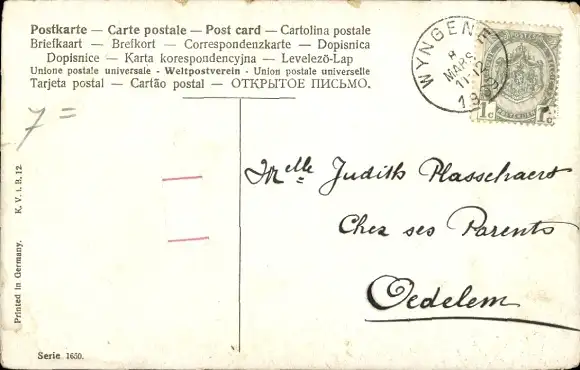 Postkarte — Carte postale — Post card — Cartolina postale
Briefkaart — Brefkort — Correspondenzkarte — Dopisnica
Dopisnice — Karta korespondencyjna — Levelező-Lap
Unione postale universale - Weltpostverein - Union postale universelle
Tarjeta postal — Cartão postal — ОТКРЫТОЕ ПИСЬМО.
WYNGENE
8
MARS
11-12
7 =
1c 1c
Melle Judith Plasschaert
Chez ses Parents
Oedelem
Printed in Germany. K. V. i. B. 12
Serie 1650.